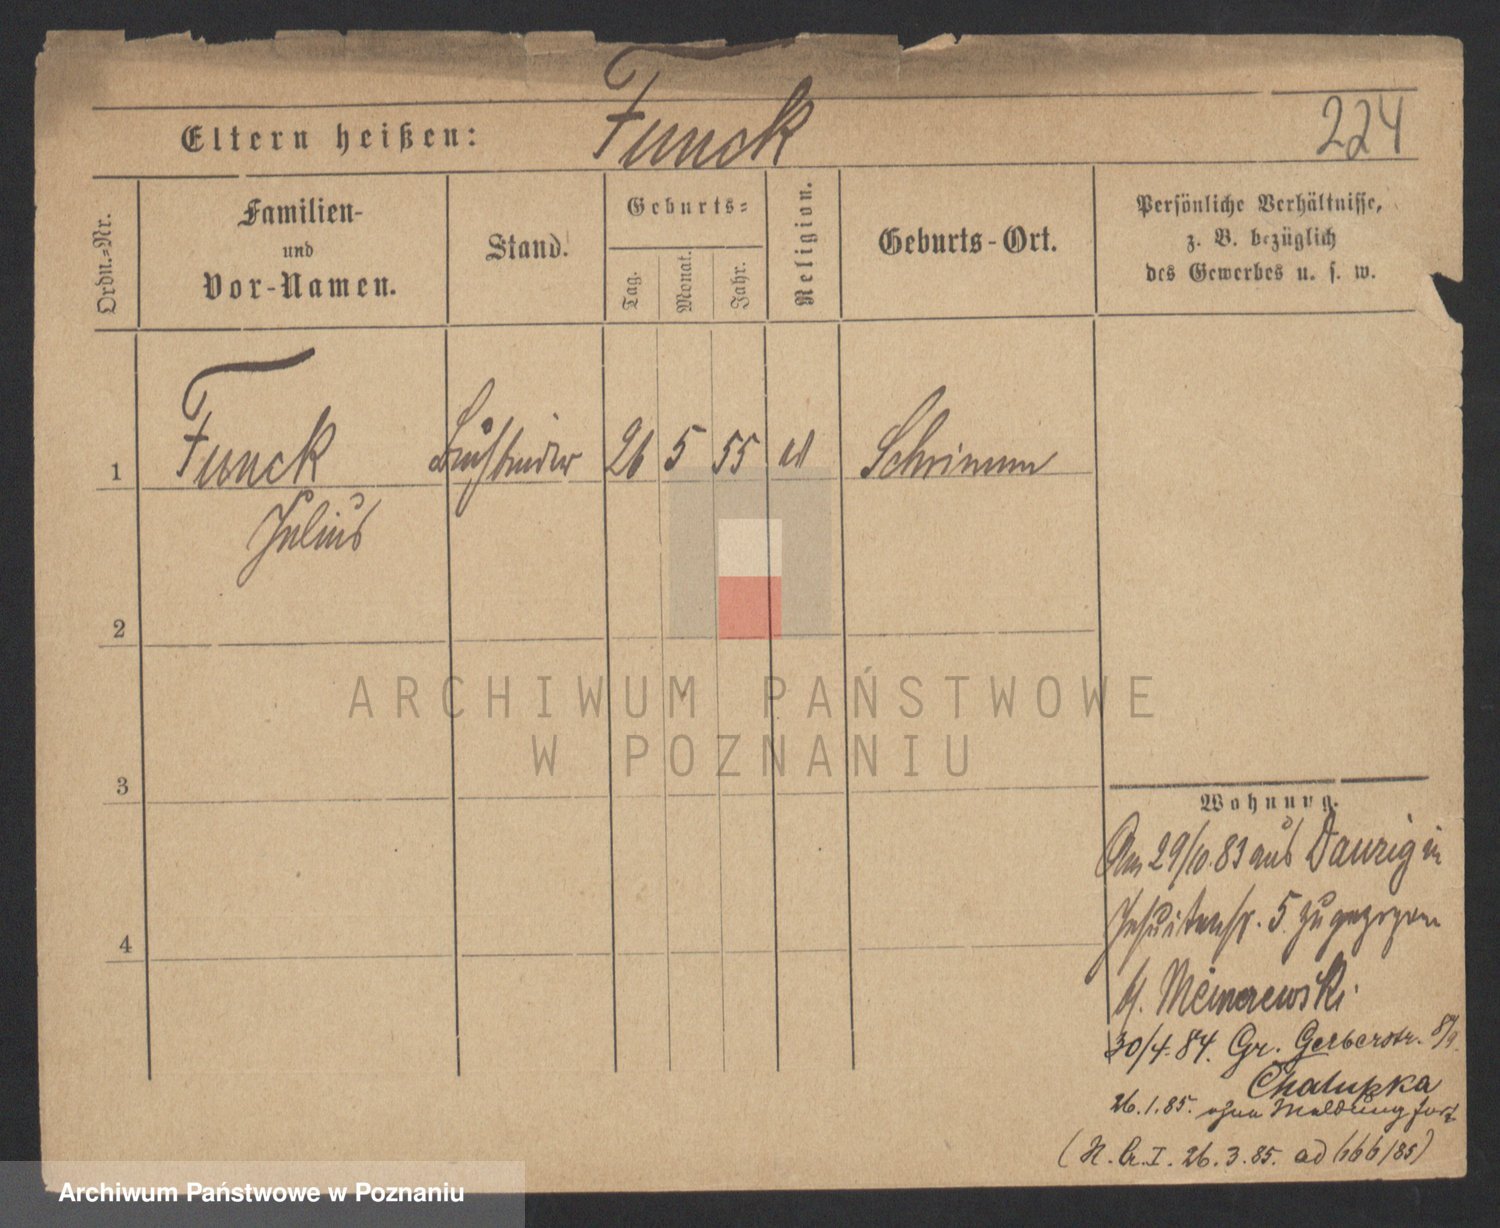 Eltern heißen: Funck 224
Ordn.-Nr.
Familien-
und
Vor-Namen.
Stand.
Geburts-
Tag. Monat. Jahr.
Religion.
Geburts-Ort.
Persönliche Verhältnisse,
z. B. bezüglich
des Gewerbes u. s. w.
1 Funck Buchbinder 26 5 55 Schrimm
Julius
2
3
4
Wohnung.
Am 29/10.83 aus Danzig in
Jesuitenstr. 5 zugezogen
b/.
30/4.84. Gr. Gerberstr. 8/9.
Chalupka
26.1.85. ohne Meldung fort
26.3.85. ad 666/85)
ARCHIWUM PAŃSTWOWE
W POZNANIU
Archiwum Państwowe w Poznaniu